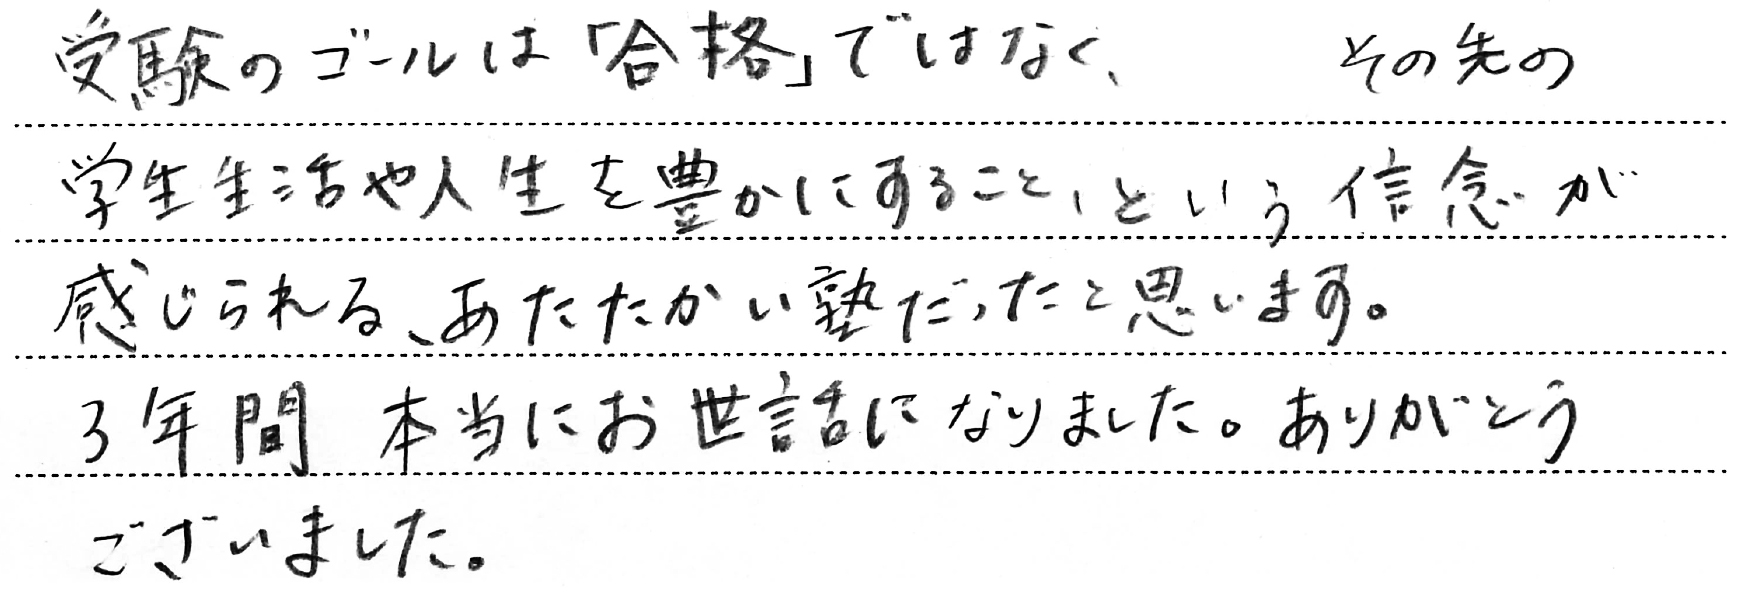 受験のゴールは「合格」ではなく、 その先の
学生生活や人生を豊かにすること、という信念が
感じられる、あたたかい塾だったと思います。
3年間 本当にお世話になりました。ありがとう
ございました。